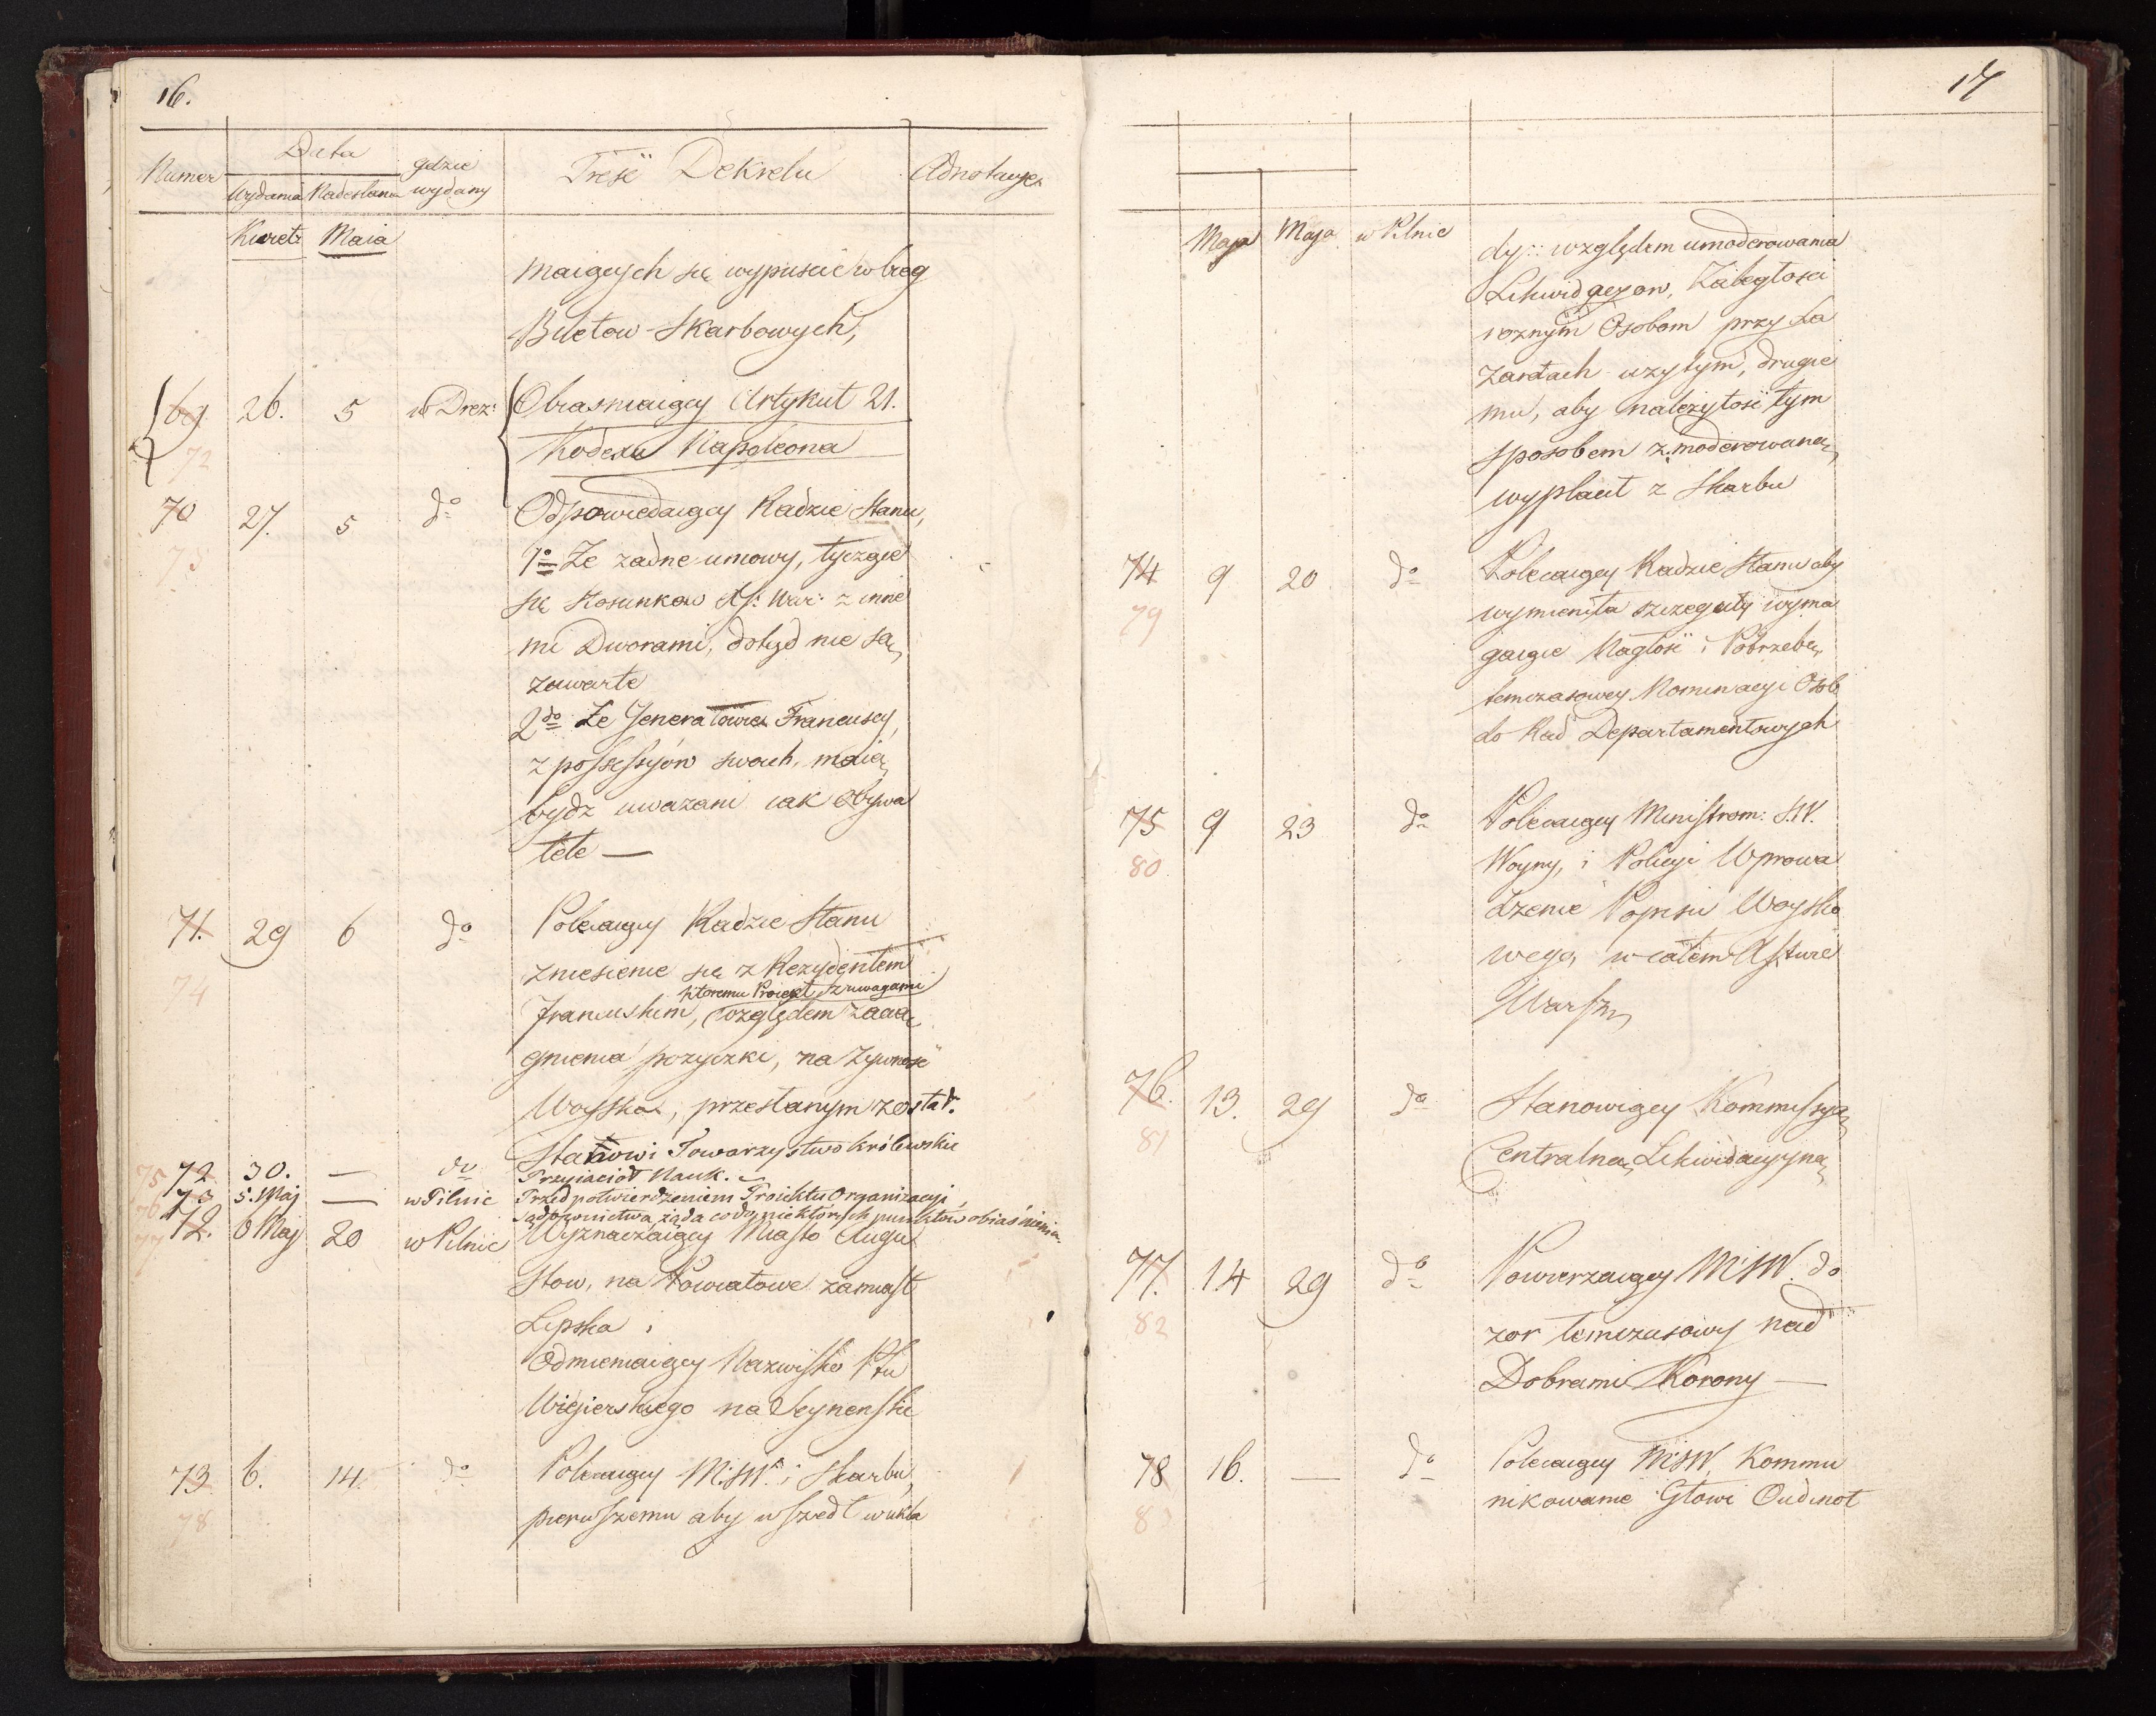 16.
Numer Data gdzie wydany Treść Dekretu Adnotacye
Wydania Nadesłania
Kwiet: Maia
maiących się wypuścić w bieg
Biletow Skarbowych,
69 26. 5 w Drez: Obiasniaiący Artykuł 21.
72 Kodexu Napoleona
70 27. 5 do Odpowiedaiący Radzie Stanu,
73 1o Ze zadne umowy, tyczące
się stosunkow Xs: War: z inne
mi Dworami, dotyd nie są
zawarte
2do Ze Generałowie Francuscy,
z possessyów swoich, maią
bydz uwazani iak Obywa
tele —
71. 29 6 do Polecaiący Radzie Stanu
74 zniesienie się z Rezydentem
ktoremu Proiekt z uwagami
Francuskim, względem zacią
gnienia pozyczki, na Zywność
Woyska, przesłanym został.
75 72 30. — do Stanowi Towarzystwo Królewskie
Przyiaciół Nauk. —
76 73 5. Maj — w Pilnic Przed potwierdzeniem Proiektu Organizacyi
Sądownictwa żąda co do niektórych punktów obiaśnienia.
77 72. 6 Maj 20 w Pilnic Wyznaczaiący Miasto Augu
stow, na Powiatowe zamiast
Lipska i
Odmieniaiący Nazwisko Ptu
Wigierskiego na Seynenskie
73 6. 14. do Polecaiący M.S.W. i Skarbu,
78 pierwszemu aby wszedł w ukła
17
Maja Maja w Pilnic dy:: względem umoderowania
Likwidacyow, Zaległosci
roznym Osobom przy La
zaretach uzytym, drugie
mu, aby należytość tym
sposobem zmoderowaną
wypłacił z Skarbu
74 9 20 do Polecaiący Radzie Stanu aby
79 wymieniła szczeguły wyma
gaiące Nagłość i Potrzebę
temczasowey Nominacyi Osob
do Rad Departamentowych
75 9 23 do Polecaiący Ministrom: S.W.
80 Woyny, i Policyi Wprowa
dzenie Popisu Woysko
wego, w całem Xstwie
Warsz,
76. 13. 29 do Stanowiący Kommissyą
81 Centralną Likwidacyiną
77. 14 29 do Powierzaiący MSW. do
82 zor temczasowy nad
Dobrami Korony —
78 16. — do Polecaiący MSW. Kommu
8 nikowanie Głowi Oudinot